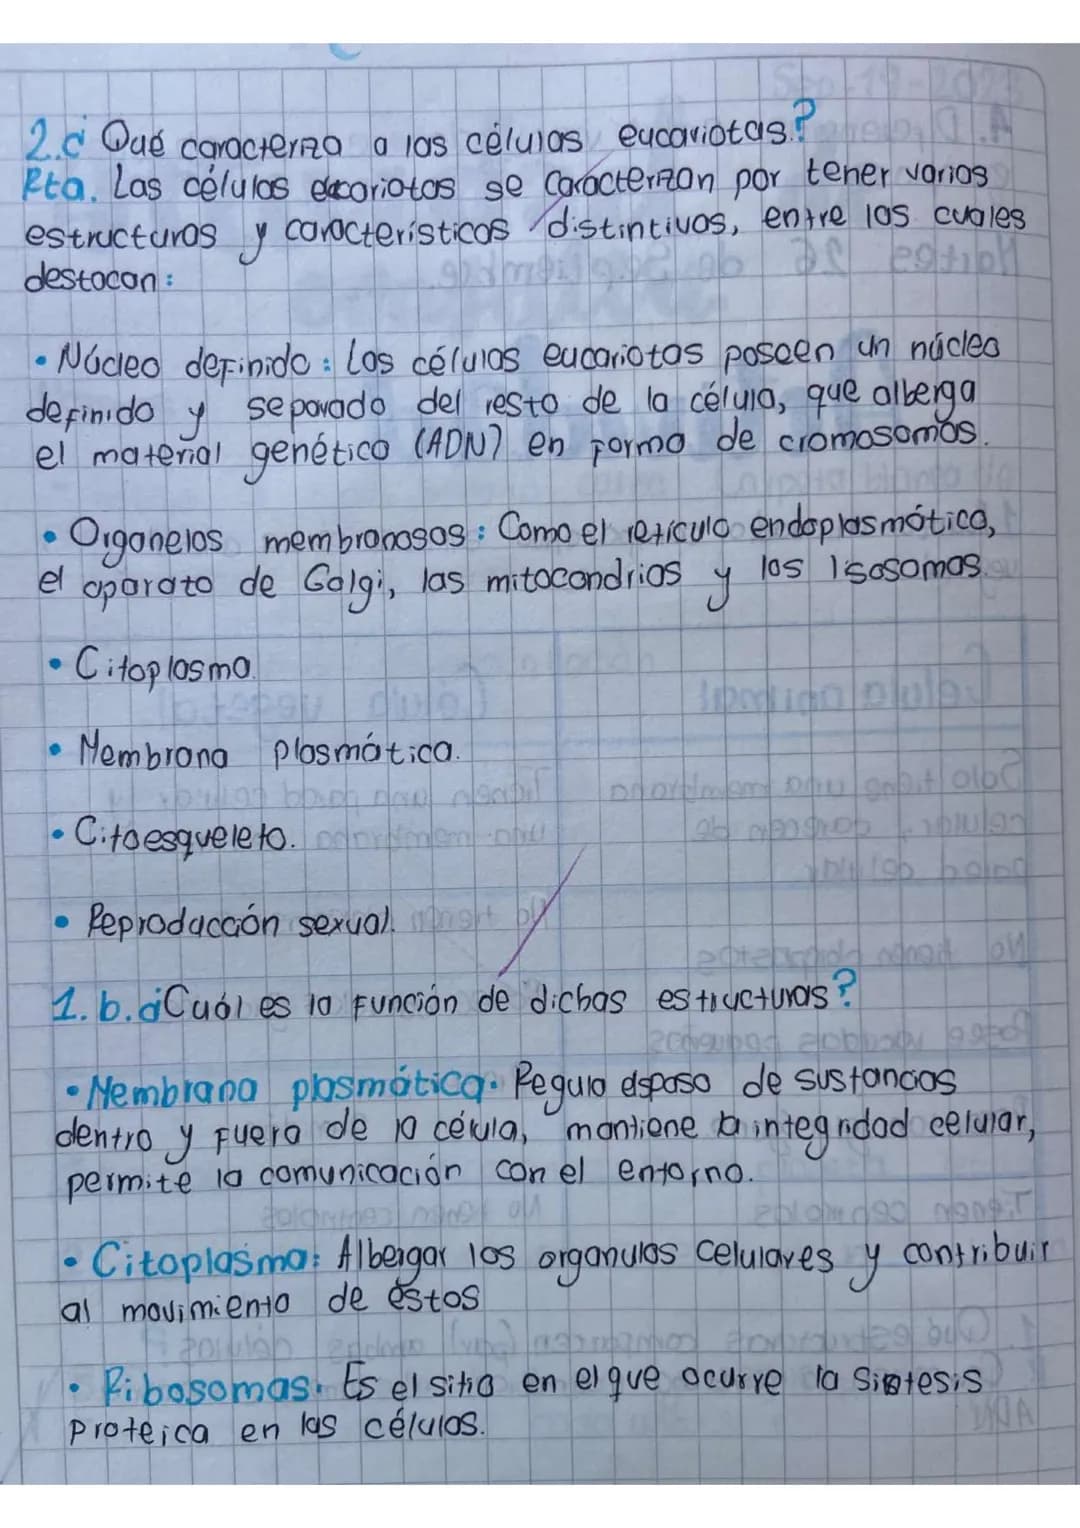 2. ¿ Qué caracteriza a las células eucariotas?
Rta. Las células eucariotas se caracterizan por tener varias
estructuras y características distintivas, entre las cuales
destacan:
• Núcleo definido: Las células eucariotas poseen un núcleo
definido y separado del resto de la célula, que alberga
el material genético (ADN) en forma de cromosomas.
• Organelos membranosos: Como el retículo endoplasmático,
el aparato de Golgi, las mitocondrias y los lisosomas.
• Citoplasma.
• Membrana plasmática.
• Citoesqueleto.
• Reproducción sexual.
1. b. ¿Cuál es la función de dichas estructuras?
• Membrana plasmática. Regula el paso de sustancias
dentro y fuera de la célula, mantiene la integridad celular,
permite la comunicación con el entorno.
• Citoplasma: Albergar los organulos celulares y contribuir
al movimiento de éstos
• Ribosomas. Es el sitio en el que ocurre la Sintesis
Proteica en las células.